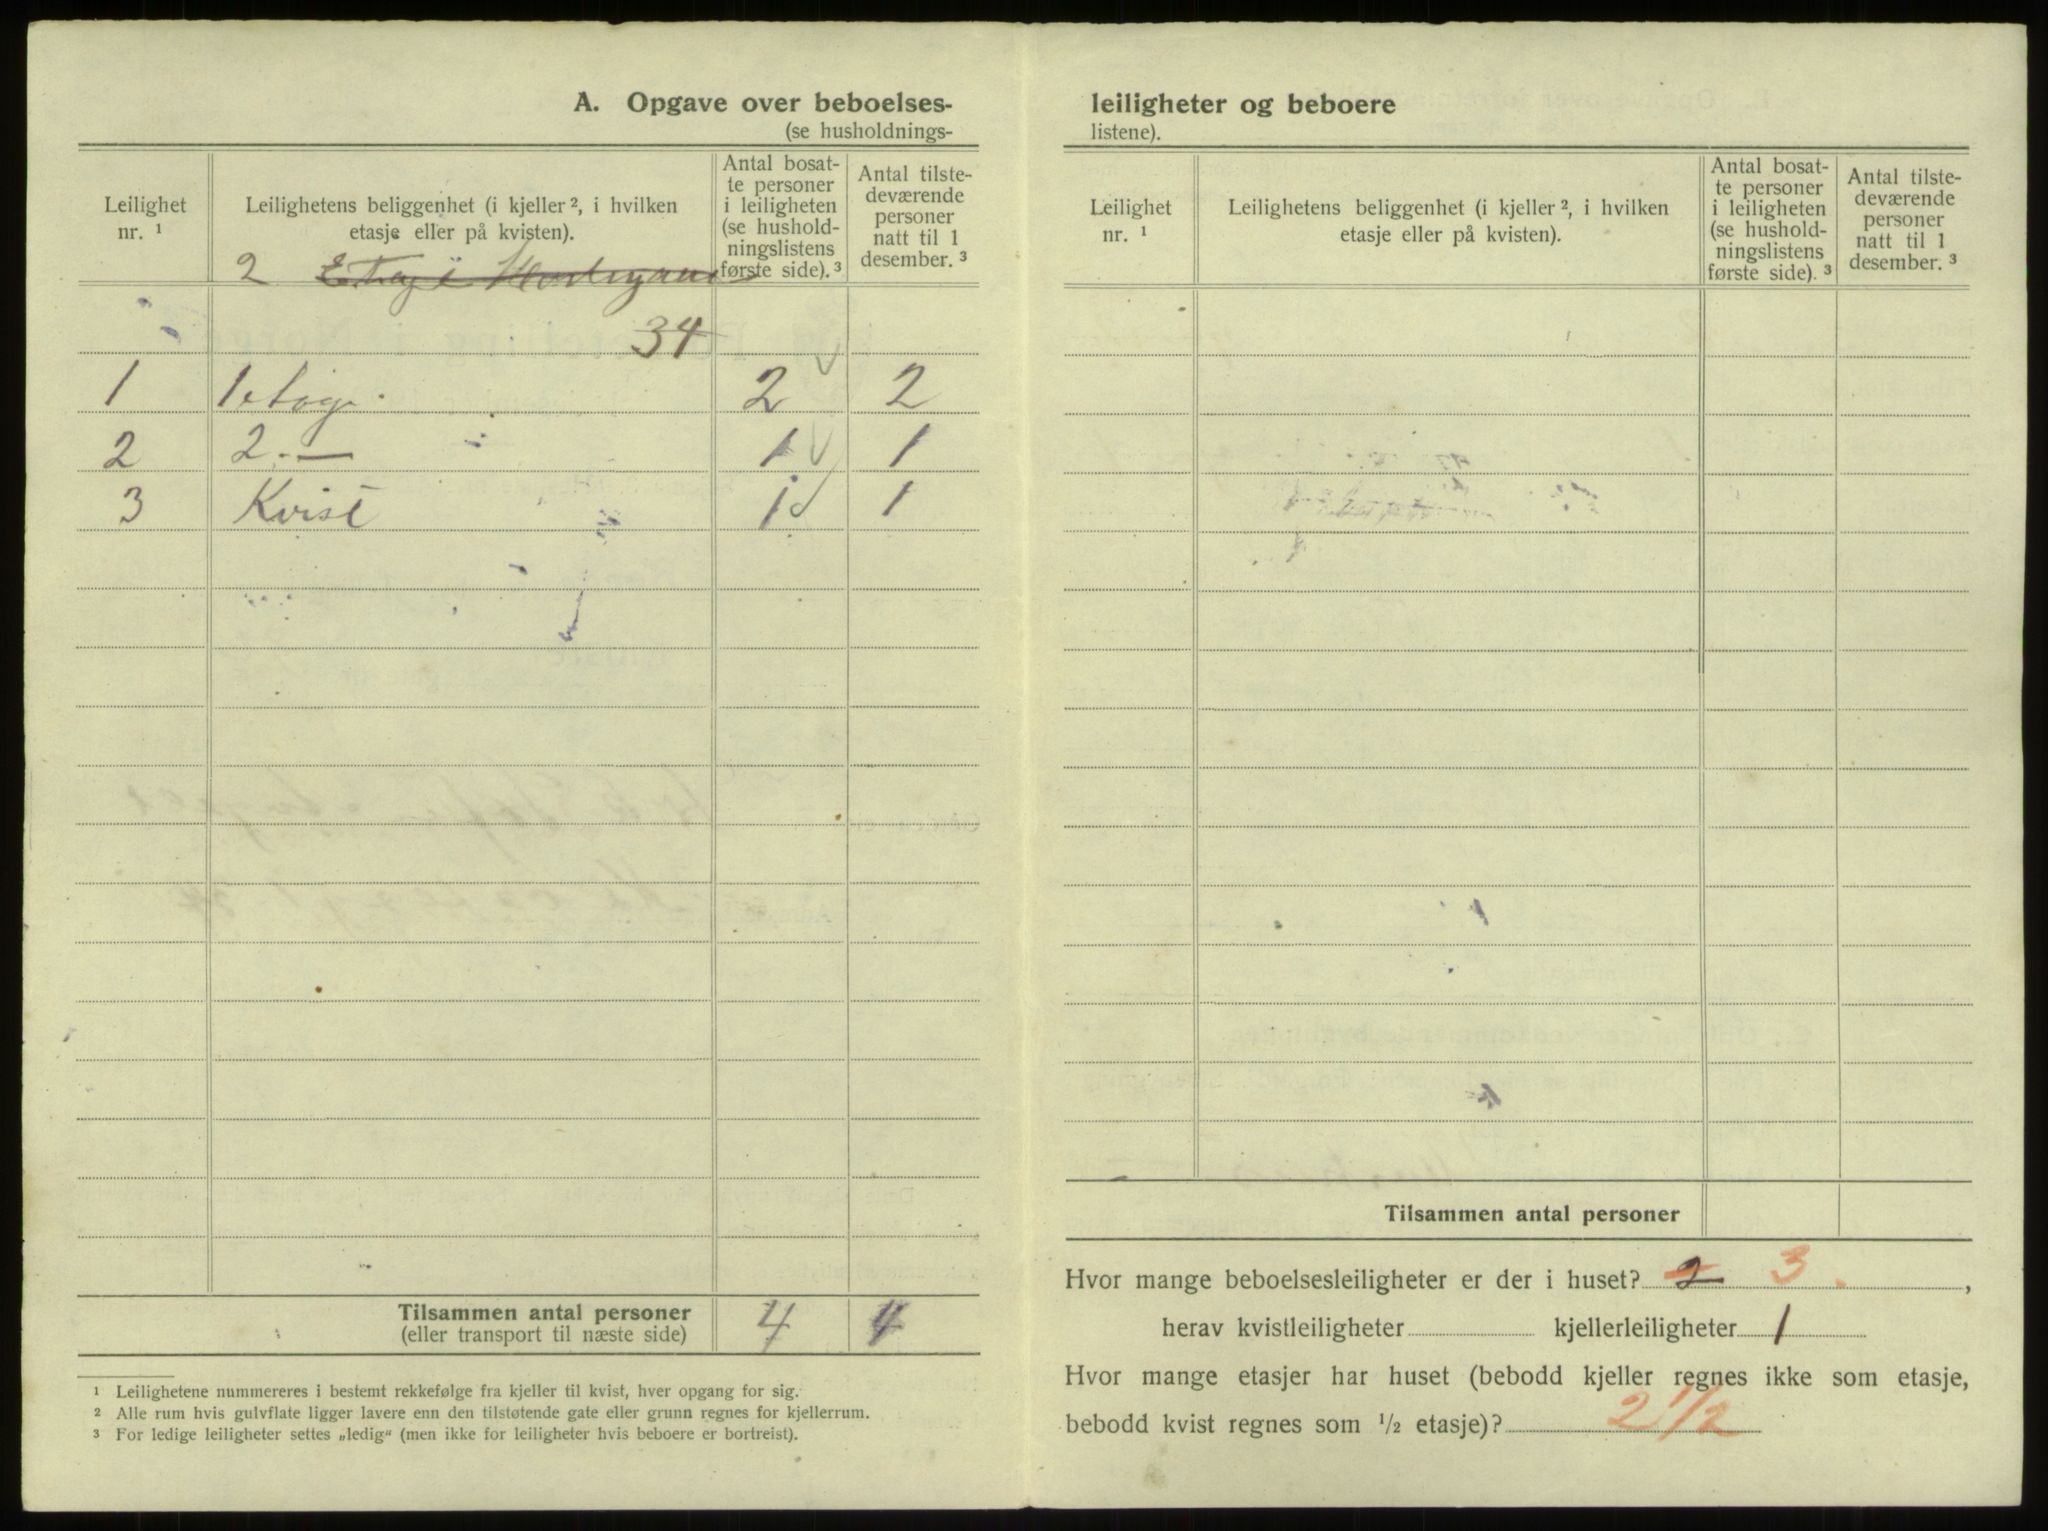 A. Opgave over beboelses-
(se husholdnings-
Leilighet
nr. ¹
Leilighetens beliggenhet (i kjeller ², i hvilken
etasje eller på kvisten).
Antal bosat-
te personer
i leiligheten
(se hushold-
ningslistens
første side). ³
Antal tilste-
deværende
personer
natt til 1
desember. ³
2
34
1 1 etag. 2 2
2 2. — 1 1
3 Kvist 1 1
Tilsammen antal personer 4 4
(eller transport til næste side)
¹ Leilighetene nummereres i bestemt rekkefølge fra kjeller til kvist, hver opgang for sig.
² Alle rum hvis gulvflate ligger lavere enn den tilstøtende gate eller grunn regnes for kjellerrum.
³ For ledige leiligheter settes „ledig“ (men ikke for leiligheter hvis beboere er bortreist).
leiligheter og beboere
listene).
Leilighet
nr. ¹
Leilighetens beliggenhet (i kjeller ², i hvilken
etasje eller på kvisten).
Antal bosat-
te personer
i leiligheten
(se hushold-
ningslistens
første side). ³
Antal tilste-
deværende
personer
natt til 1
desember. ³
Tilsammen antal personer
Hvor mange beboelsesleiligheter er der i huset? 2 3.,
herav kvistleiligheter kjellerleiligheter 1
Hvor mange etasjer har huset (bebodd kjeller regnes ikke som etasje,
bebodd kvist regnes som ½ etasje)? 2 1/2